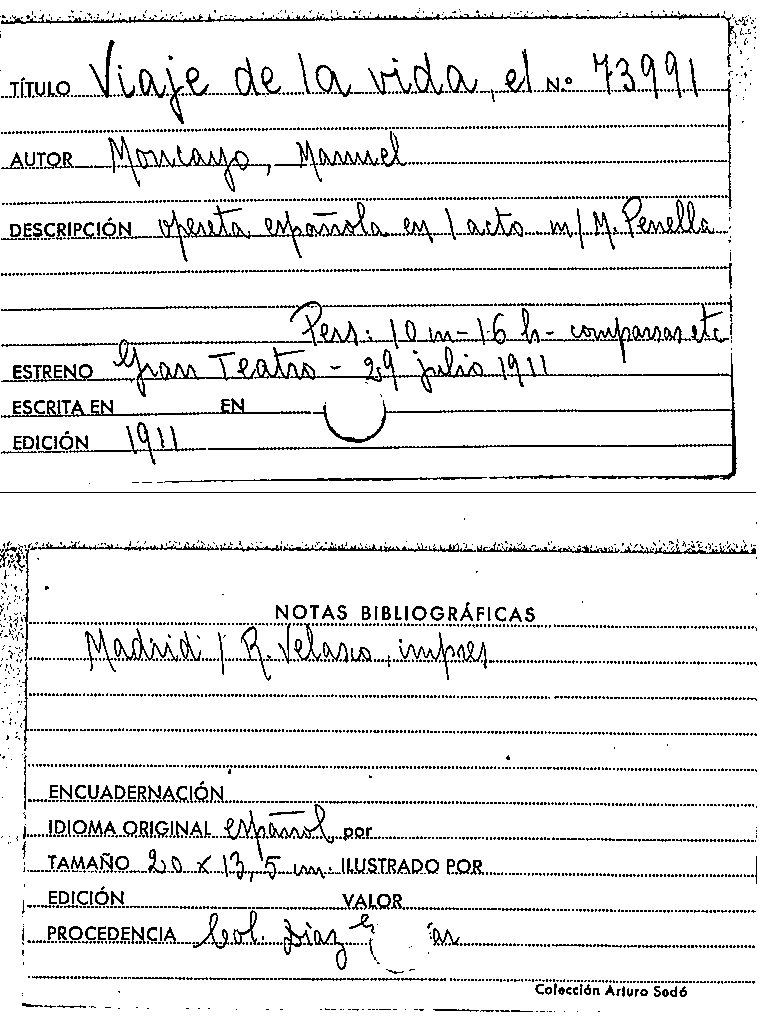 TÍTULO Viaje de la vida, el Nº 73991
AUTOR Moncayo, Manuel
DESCRIPCIÓN opereta española en 1 acto m/ M. Penella
Pers: 10 m - 16 h - comparsas etc
ESTRENO Gran Teatro - 29 julio 1911
ESCRITA EN EN
EDICIÓN 1911
NOTAS BIBLIOGRÁFICAS
Madrid / R. Velasco, impres
ENCUADERNACIÓN
IDIOMA ORIGINAL español por
TAMAÑO 20 x 13,5 cm. ILUSTRADO POR
EDICIÓN VALOR
PROCEDENCIA Col. Díaz
Colección Arturo Sedó